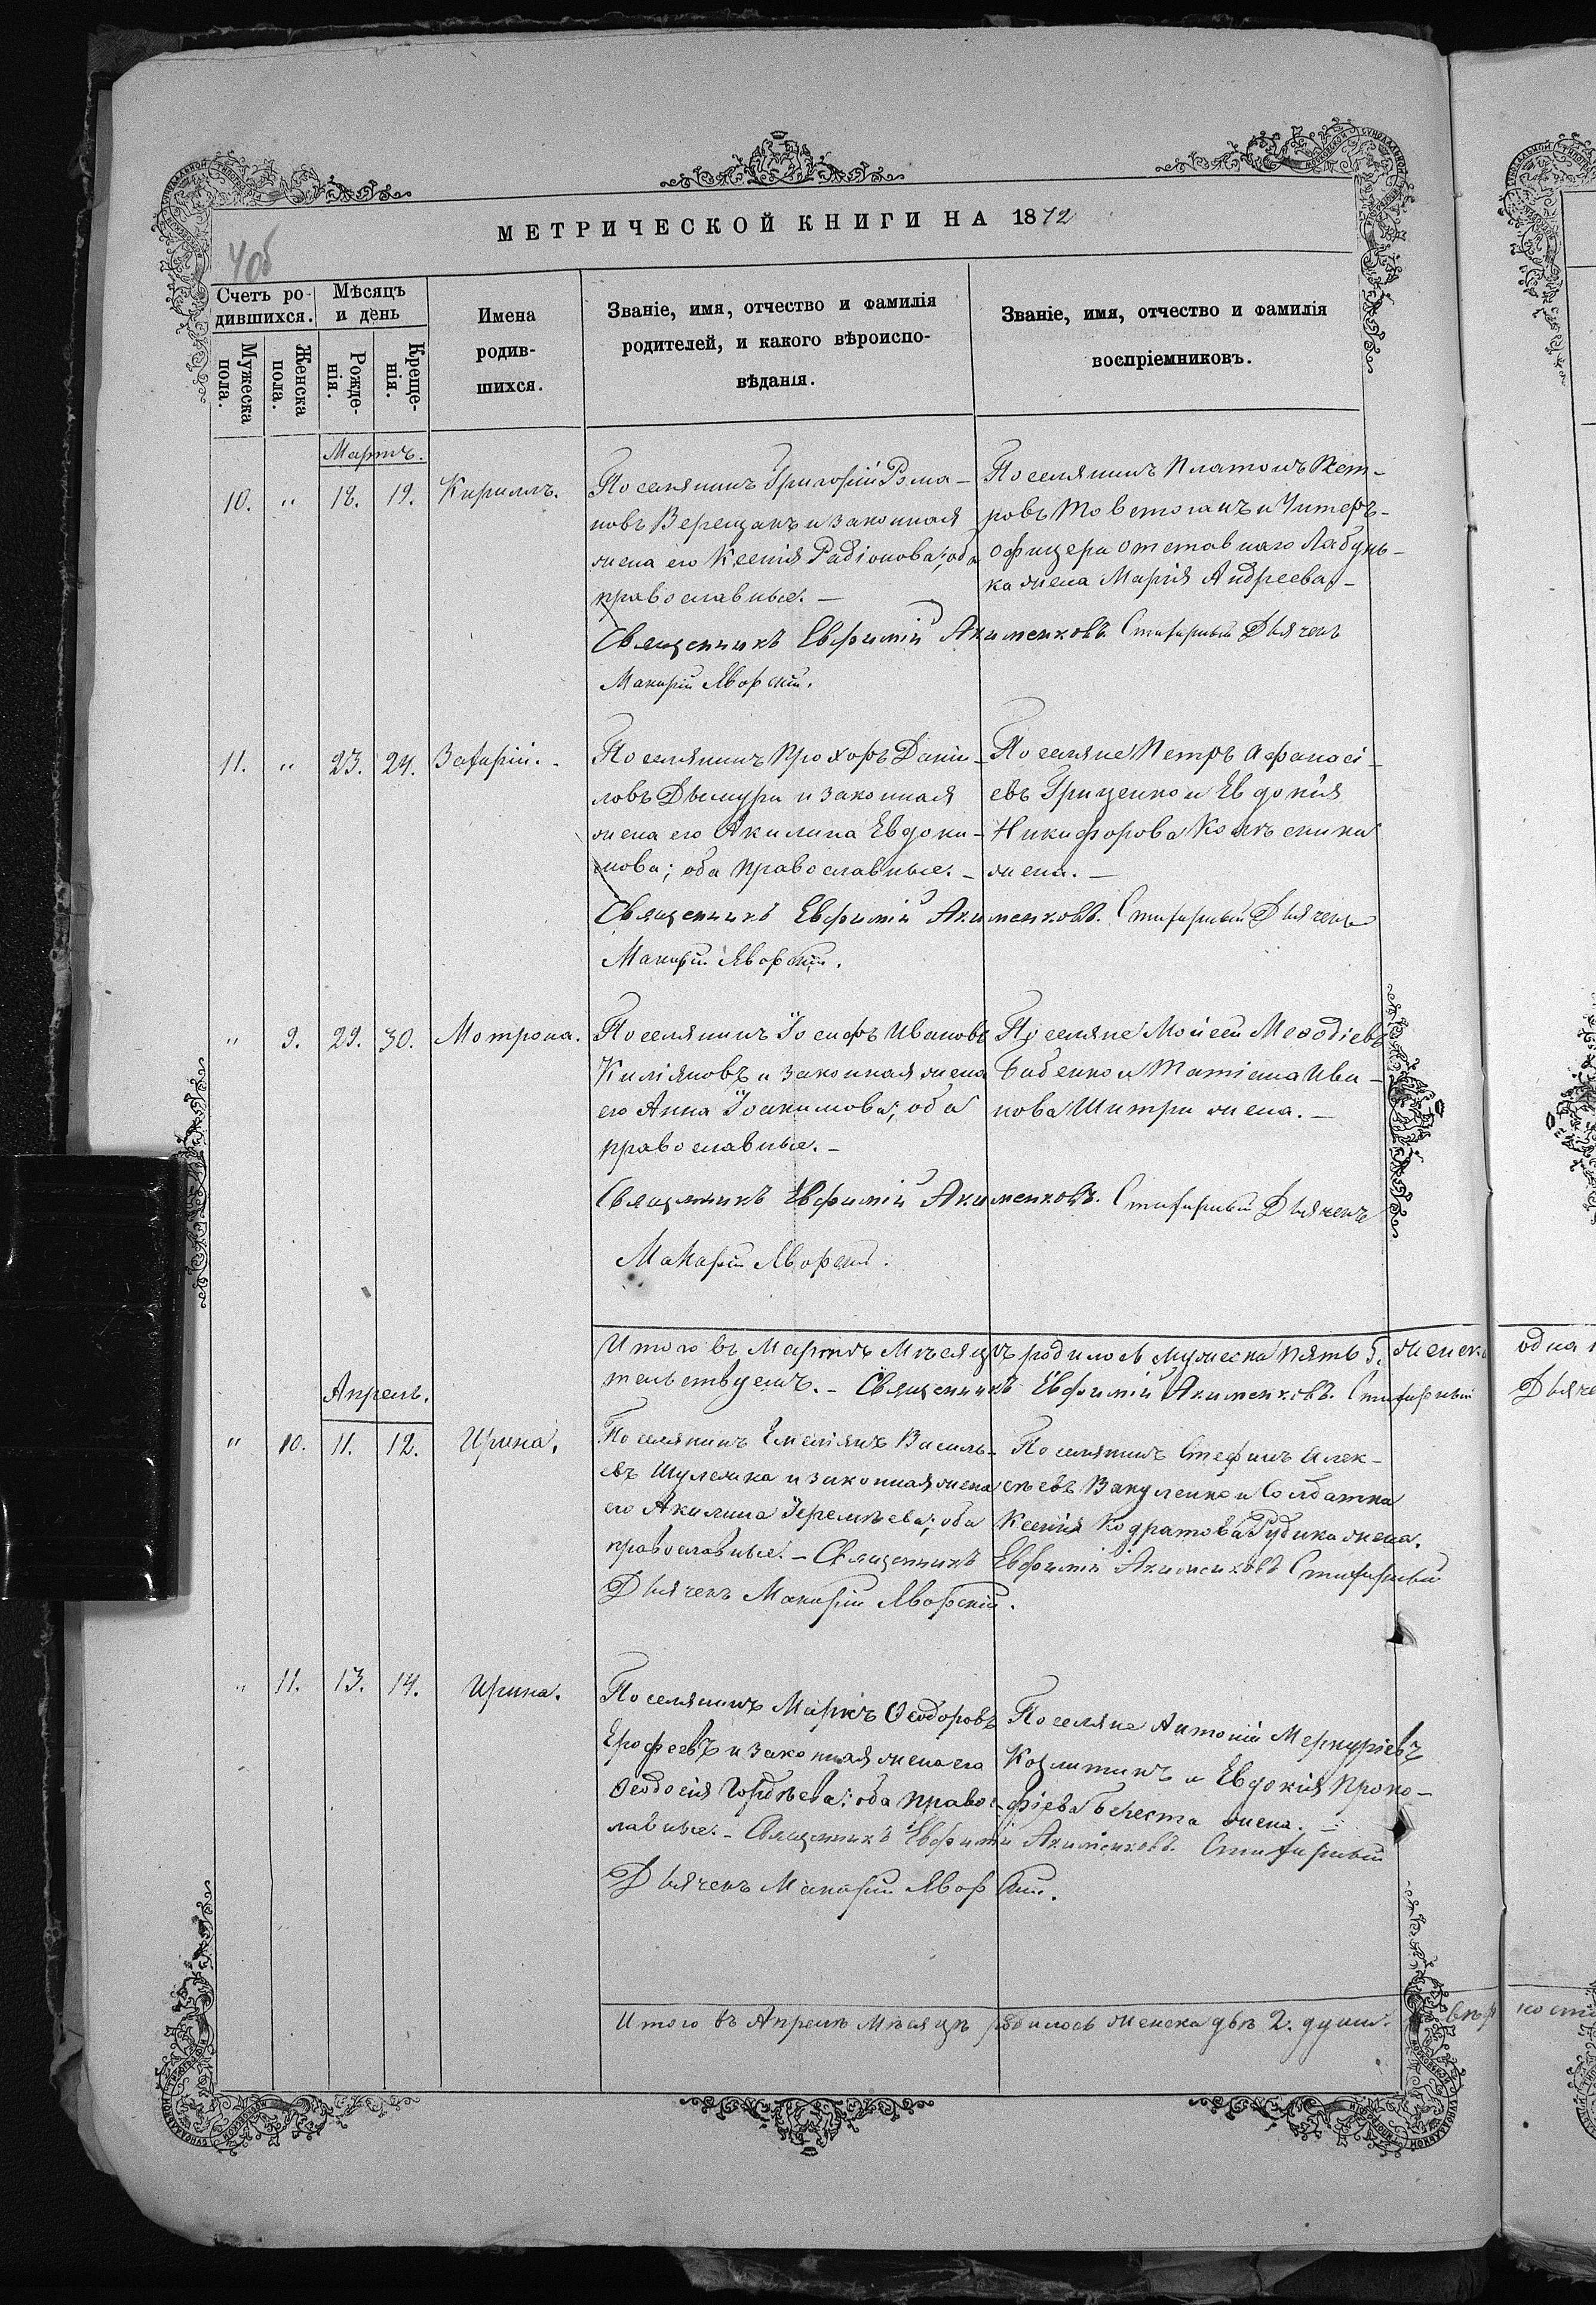 МЕТРИЧЕСКОЙ КНИГИ НА 1872
Счетъ ро-
дившихся.
Мѣсяцъ
и день
Мужеска
пола.
Женска
пола.
Рожде-
нія.
Креще-
нія.
Имена
родив-
шихся.
Званіе, имя, отчество и фамилія
родителей, и какого вѣроиспо-
вѣданія.
Званіе, имя, отчество и фамилія
воспріемниковъ.
Мартъ.
10. " 18. 19. Кириллъ.
Поселянинъ Григорій Рома-
новъ Верещакъ и законная
жена его Ксенія Радіонова; оба
православные. —
Поселянинъ Платонъ Пет-
ровъ Товстоганъ и Унтеръ-
офицера отставнаго Лабунь-
ка жена Марія Андреева. —
Священникъ Евфимій Акименковъ. Стихарный Дьячекъ
Макарій Яворскій.
11. " 23. 24. Захарій.
Поселянинъ Прохоръ Дани-
ловъ Дьмура и законная
жена его Акилина Евдоки-
мова; оба православные. —
Поселяне Петръ Афанасі-
евъ Гриценко и Евдокія
Никифорова
жена. —
Священникъ Евфимій Акименковъ. Стихарный Дьячекъ
Макарій Яворскій.
" 9. 29. 30. Мотрона.
Поселянинъ Іосифъ Ивановъ
Киліяновъ и законная жена
его Анна Іоакимова; оба
православные. —
Поселяне Моисей Меѳодіевъ
Бабенко и Татіана Ива-
нова жена. —
Священникъ Евфимій Акименковъ. Стихарный Дьячекъ
Макарій Яворскій.
Итого въ Мартѣ Мѣсяцѣ родилось мужеска пять 5. женска
тельствуемъ. — Священникъ Евфимій Акименковъ. Стихарный
одна
Апрель.
" 10. 11. 12. Ирина.
Поселянинъ Емеліянъ Василь-
евъ Шулежка и законная жена
его Акилина Іеремѣева; оба
православные. — Священникъ Евфимій Акименковъ Стихарный
Дьячекъ Макарій Яворскій.
Поселянинъ Стефанъ Алек-
сѣевъ Вакуленко и Солдатка
Ксенія Кодратова Рудика жена.
" 11. 13. 14. Ирина.
Поселянинъ Маркъ Ѳеодоровъ
Ерофеевъ и законная жена его
Ѳеодосія Гордѣева; оба правос-
лавные. — Священникъ Евфимій Акименковъ. Стихарный
Дьячекъ Макарій Яворскій.
Поселяне Антоній Меркуріевъ
Козлитинъ и Евдокія Проко-
фіева Береста жена. —
Итого въ Апрелѣ Мѣсяцѣ родилось женска двѣ 2. души.